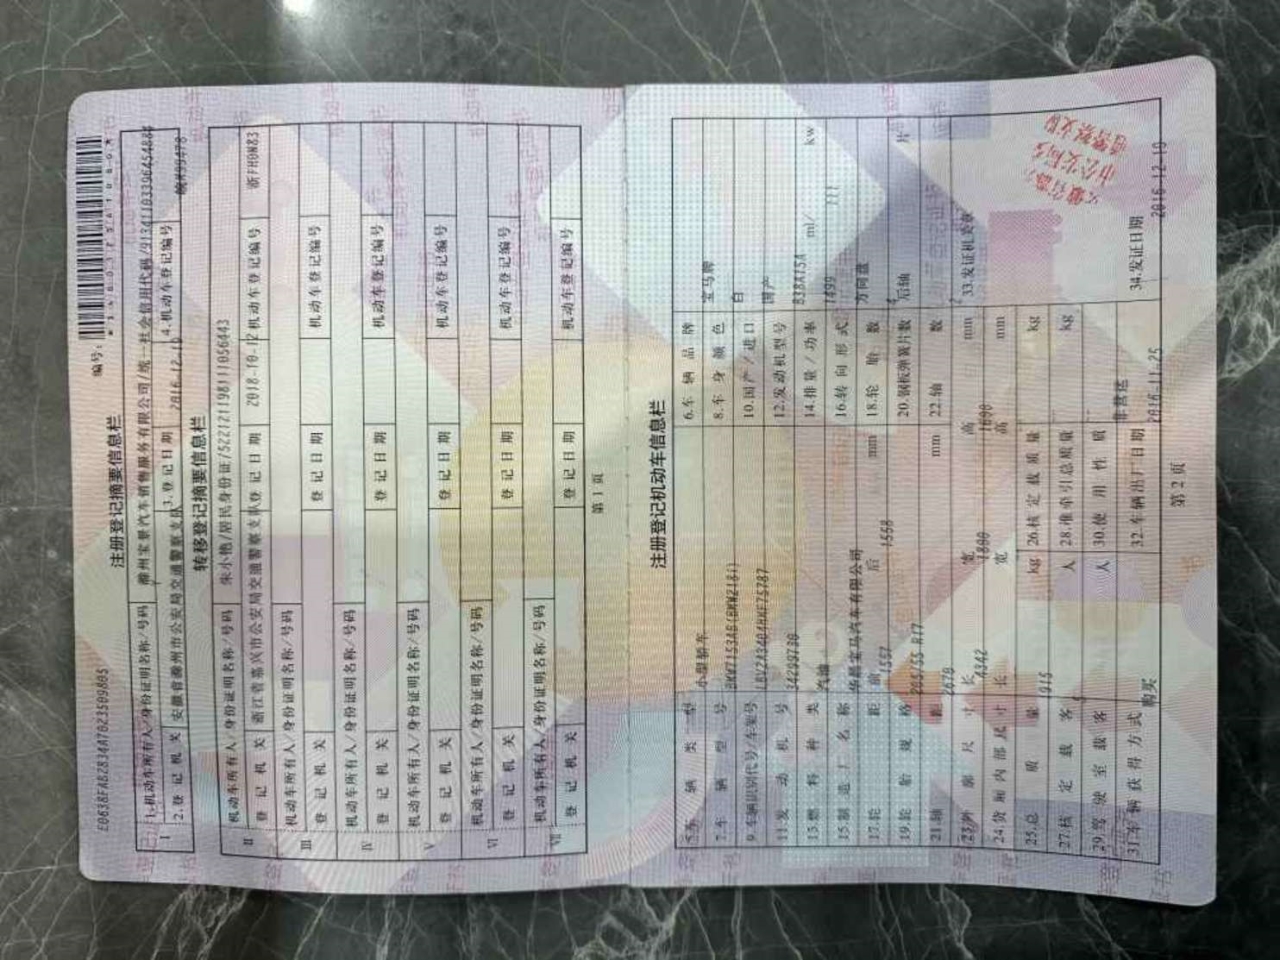 E0638FAB2834A7023509805
编号:
注册登记摘要信息栏
I 1.机动车所有人/身份证明名称/号码 滁州宝景汽车销售服务有限公司/统一社会信用代码/
2.登记机关 安徽省滁州市公安局交通警察支队 3.登记日期 2016-12-19 4.机动车登记编号
转移登记摘要信息栏
II 机动车所有人/身份证明名称/号码 朱小艳/居民身份证/522121198111056443
登记机关 浙江省嘉兴市公安局交通警察支队 登记日期 2018-10-12 机动车登记编号 浙FH0N83
III 机动车所有人/身份证明名称/号码
登记机关 登记日期 机动车登记编号
IV 机动车所有人/身份证明名称/号码
登记机关 登记日期 机动车登记编号
V 机动车所有人/身份证明名称/号码
登记机关 登记日期 机动车登记编号
VI 机动车所有人/身份证明名称/号码
登记机关 登记日期 机动车登记编号
VII 机动车所有人/身份证明名称/号码
登记机关 登记日期 机动车登记编号
第 1 页
注册登记机动车信息栏
5.车辆类型 小型轿车 6.车辆品牌 宝马牌
7.车辆型号 8.车身颜色 白
9.车辆识别代号/车架号 10.国产/进口 国产
11.发动机号 12.发动机型号 B38A15A
13.燃料种类 汽油 14.排量/功率 1499 ml/ kw
15.制造厂名称 华晨宝马汽车有限公司 16.转向形式 方向盘
17.轮距 前 1557 后 1558 mm 18.轮胎数 4
19.轮胎规格 205/55 R17 20.钢板弹簧片数 后轴 片
21.轴距 2670 mm 22.轴数 2
23.外廓尺寸 长 4342 宽 1800 高 mm 33.发证机关章
24.货厢内部尺寸 长 宽 高 mm
25.总质量 1915 kg 26.核定载质量 kg
27.核定载客 人 28.准牵引总质量 kg
29.驾驶室载客 人 30.使用性质 非营运
31.车辆获得方式 购买 32.车辆出厂日期 2016-11-25 34.发证日期 2016-12-19
第 2 页